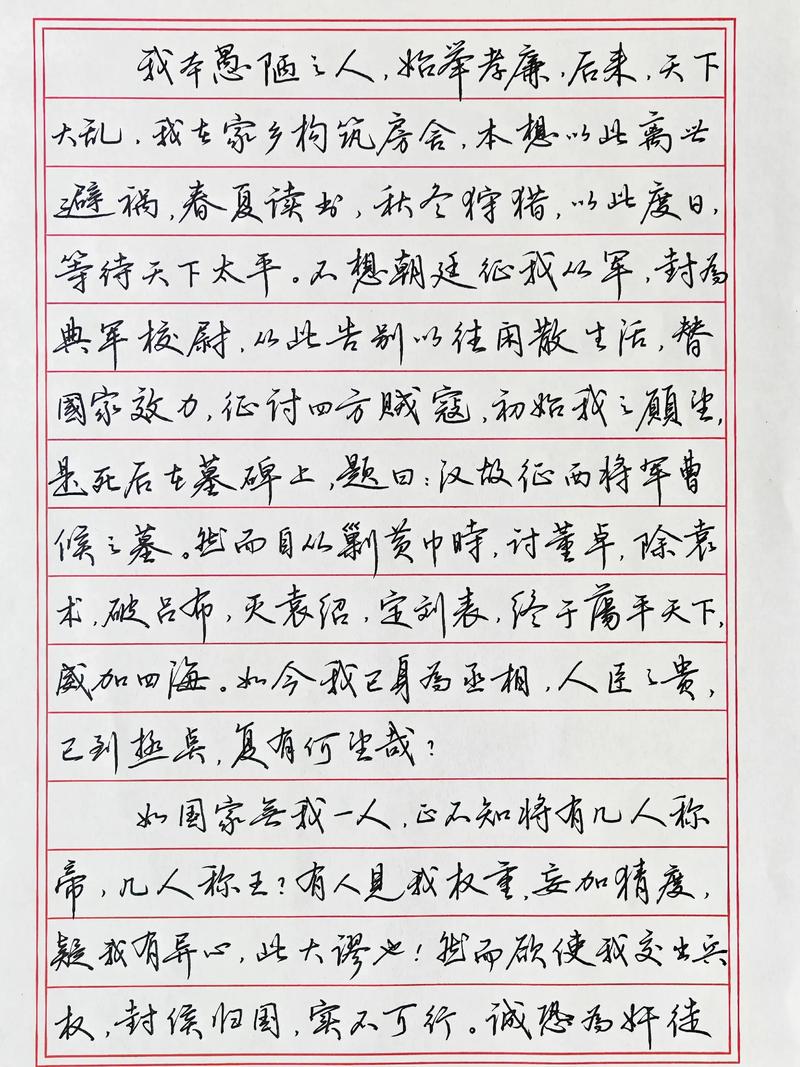 我本愚陋之人,始举孝廉,后来,天下
大乱,我在家乡构筑房舍,本想以此离世
避祸,春夏读书,秋冬狩猎,以此度日,
等待天下太平。不想朝廷征我从军,封為
典军校尉,从此告别以往闲散生活,替
國家效力,征讨四方贼寇,初始我之願望,
是死后在墓碑上,题曰:汉故征西将军曹
候之墓。然而自从剿黄巾時,讨董卓,除袁
术,破吕布,灭袁绍,定刘表,终于蕩平天下,
威加四海。如今我已身為丞相,人臣之貴,
已到極点,复有何望哉?
如国家無我一人,正不知将有几人称
帝,几人称王?有人見我权重,妄加猜度,
疑我有异心,此大謬也!然而欲使我交出兵
权,封侯归国,实不可行。诚恐為奸徒